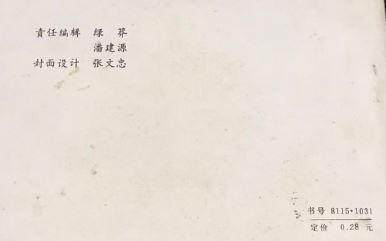 责任编辑 绿莽
潘建源
封面设计 张文忠
书号 8115·1031
定价 0.28 元